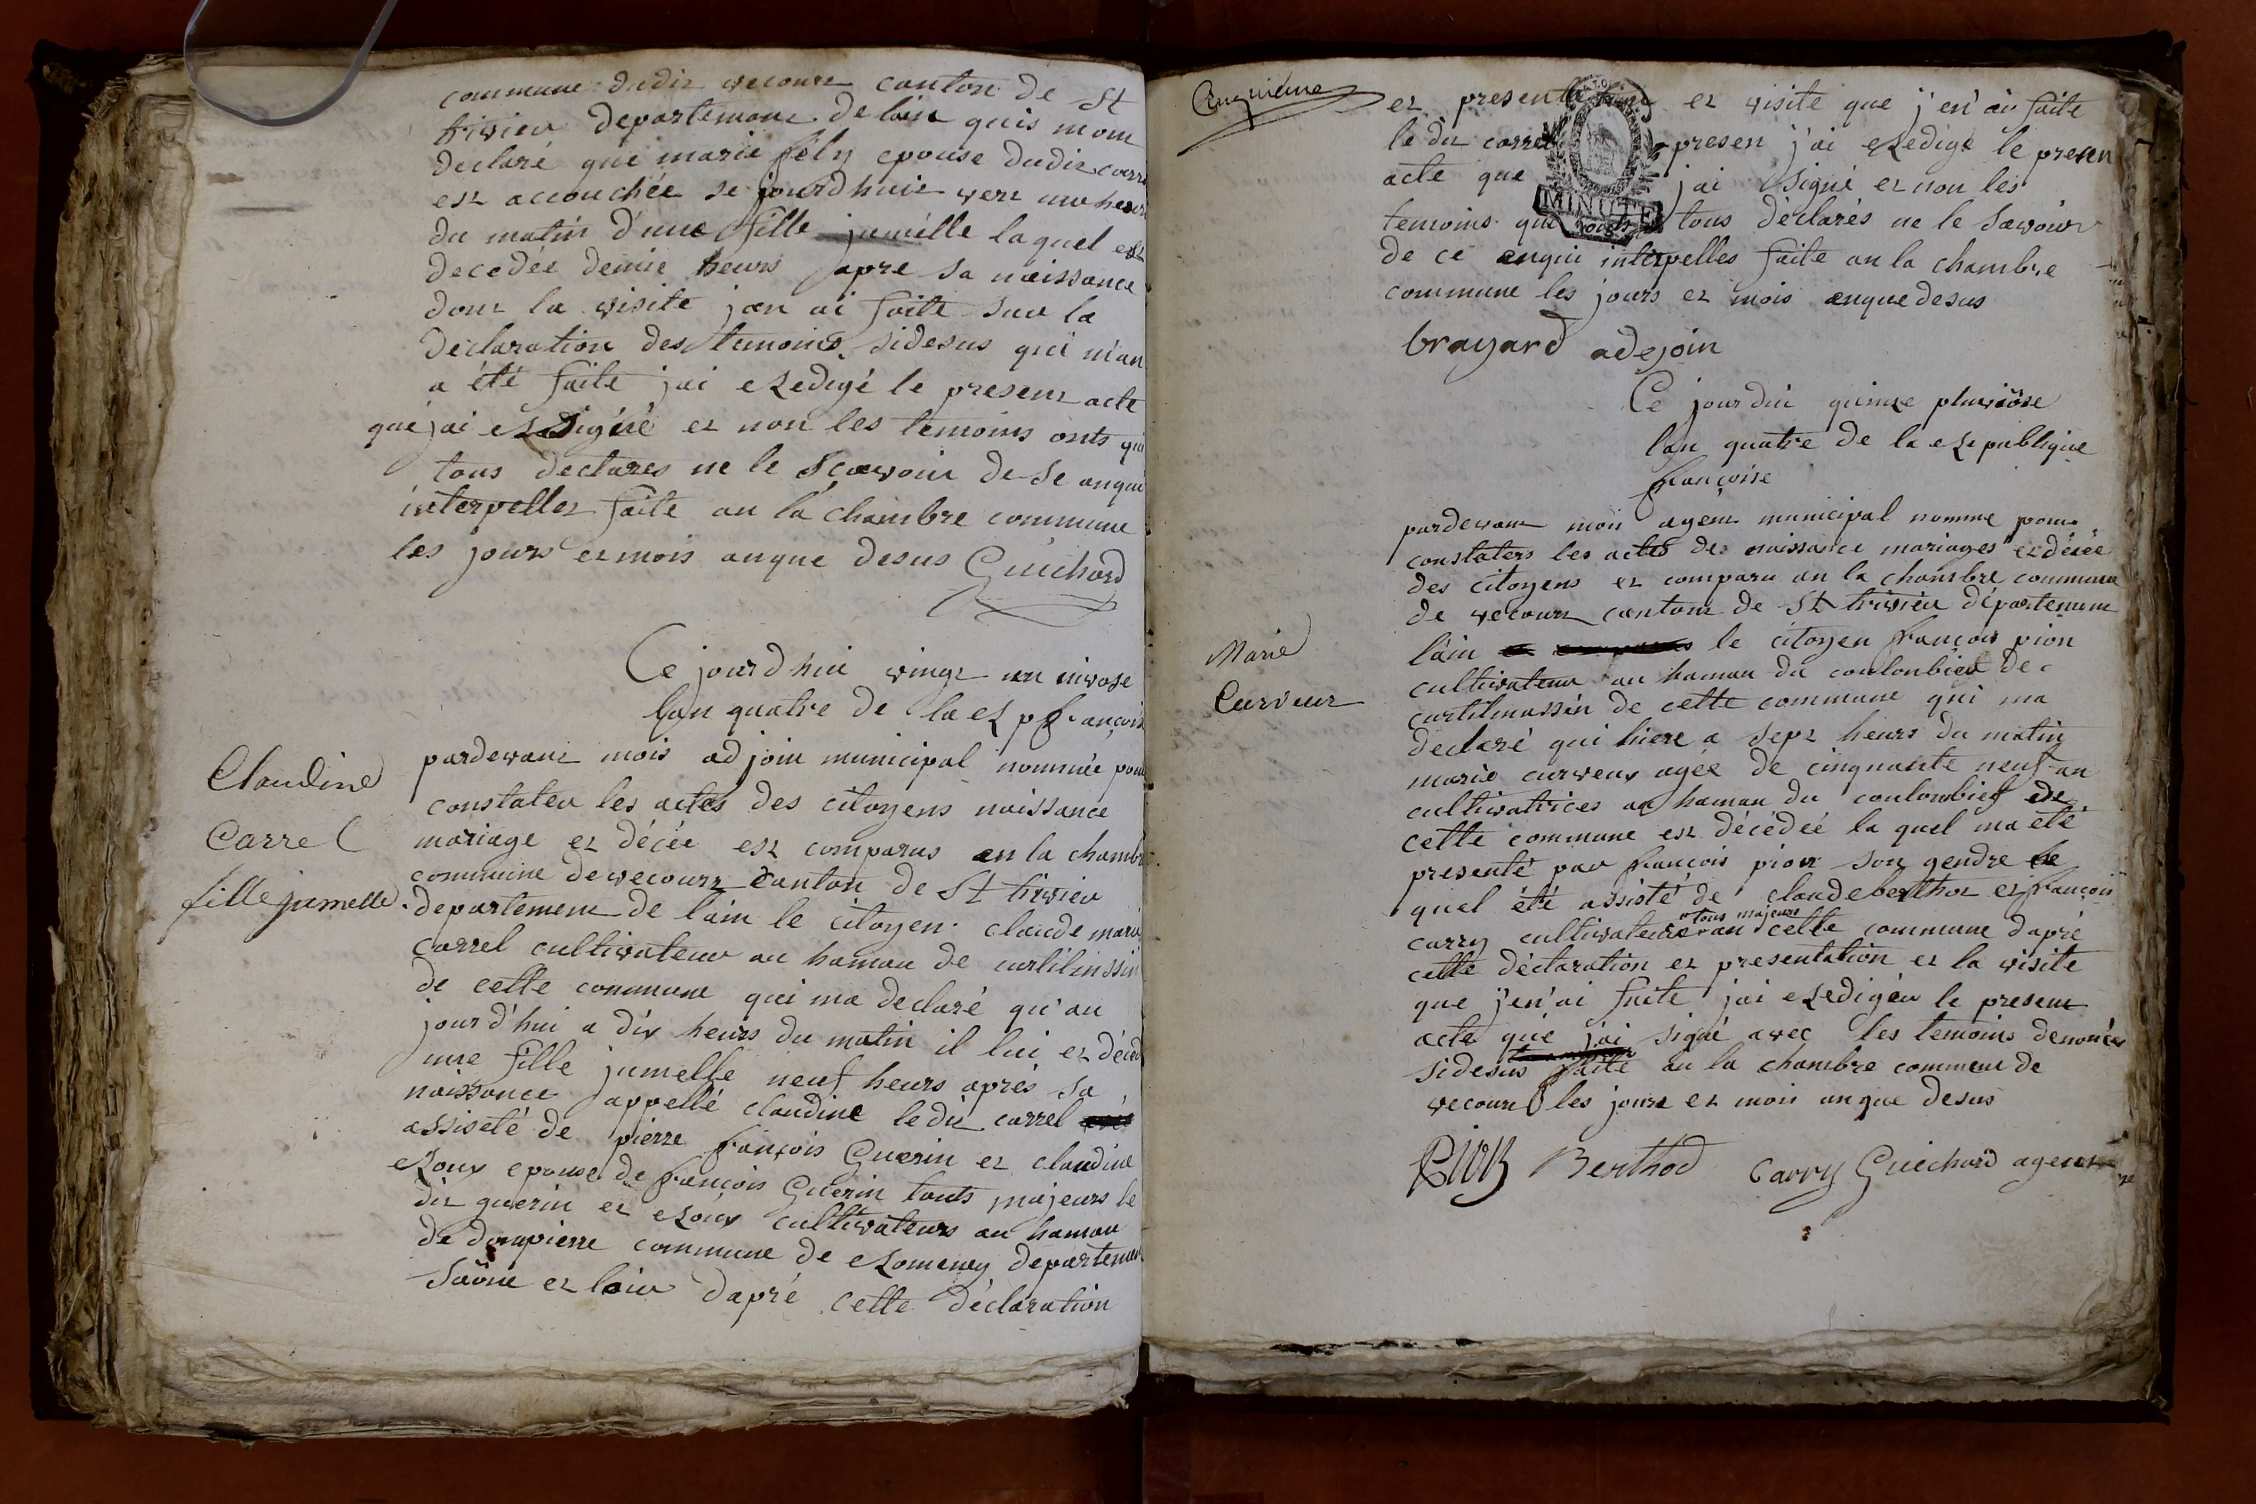 commune dudit vecourt canton de St
trivieu departement de lain quis mont
declaré que marie fély epouse dudit carr
est accouchée se jourd huit vert une heur
du matin d'une fille jumelle la quel est
decedée demie heurs apre sa naissance
dont la visite jan ai faite sur la
declaration des temoins sidesus qui m'an
a été faite jai redigé le present acte
que jai signé et non les temoins onts qui
tous declarés ne le scavoir de se anqui
interpeller faite an la chambre commune
les jours et mois anque desus Guichard
Ce jourd hui vingt un nivose
lan quatre de la rep françoise
Claudine
Carrel
fille jumelle
pardevant mois adjoin municipal nommée pour
constater les actes des citoyens naissance
mariage et décée est comparus en la chambr
commune de vecourt canton de St trivieu
departement de lain le citoyen claude marie
carrel cultivateur au hamau de curtilinssin
de cette commune qui ma declaré qu'au
jourd'hui a dix heurs du matin il lui et décéd
une fille jumelle neuf heurs après sa
naissance appellé claudine le dit carrel
assisété de pierre françois Guerin et claudine
Roux epouse de françois Guerin touts majeurs le
dit guerin et Roux cultivateurs au hamau
de dompierre commune de Romeney departement
Saône et loir dapré cette déclaration
Cinquieme
et presentation et visite que j'en ai faite
le dit carrel presen j'ai redigé le presen
acte que j'ai signé et non les
MINUTE
temoins qui tous déclarés ne le savoir
de ce anqui interpelles faite an la chambre
commune les jours et mois anque desus
brayard adejoin
Ce jourdui quinze pluviôse
lan quatre de la republique
françoise
Marie
Curveur
pardevant moi agent municipal nomme pour
constaters les actes de naissance mariages et décée
des citoyens et comparu an la chambre commune
de vecourt cantont de St trivieu départemant
lain le citoyen françois pion
cultivateur au hamau du coulonbier de
curtilmassin de cette commune qui ma
declaré qui hiere a sept heurs du matin
marie curveur agée de cinquante neuf an
cultivatrices au hamau du coulonbier de
cette commune est décédée la quel ma été
presenté par françois pion son gendre le
quel été assisté de claude berthot et françois
tous majeurs
carry cultivateur an cette commune dapré
cette déclaration et presentation et la visite
que j'en'ai faite jai redigéu le present
acte que j'ai signé avec les temoins denonces
sidesus faite an la chambre commeue de
vecourt les jours et mois anque desus
Pion Berthod Carry Guichard agent